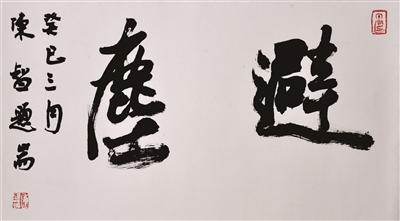 避塵
癸巳三月
陳智題耑